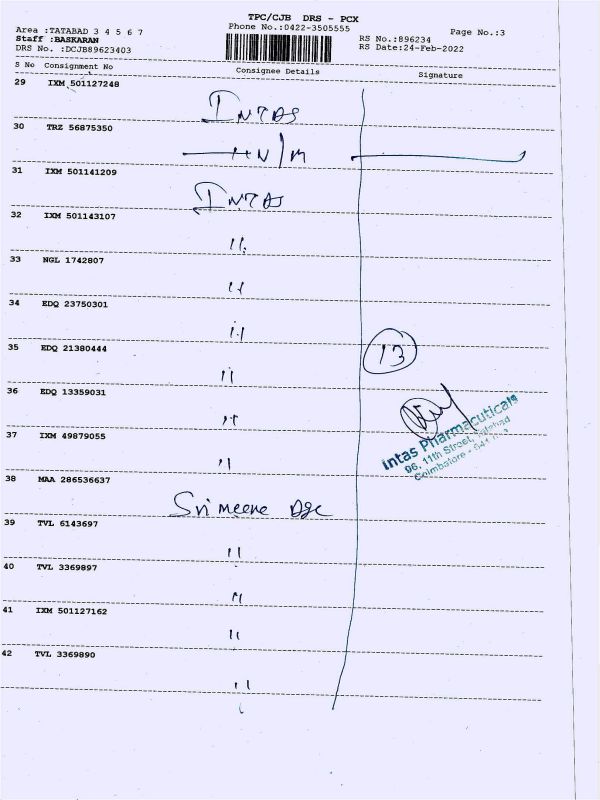 TPC/CJB DRS - PCX
Area :TATABAD 3 4 5 6 7 Phone No.:0422-3505555 Page No.:3
Staff :BASKARAN RS No.:896234
DRS No. :DCJB89623403 RS Date:24-Feb-2022
S No Consignment No Consignee Details Signature
29 IXM 501127248 INTAS
30 TRZ 56875350 N/M
31 IXM 501141209 INTAS
32 IXM 501143107 ''
33 NGL 1742807 ''
34 EDQ 23750301 ''
35 EDQ 21380444 '' 13
36 EDQ 13359031 ''
37 IXM 49879055 ''
Intas Pharmaceuticals
96, 11th Street, Tatabad
Coimbatore - 641
38 MAA 286536637 Sri meene
39 TVL 6143697 ''
40 TVL 3369897 ''
41 IXM 501127162 ''
42 TVL 3369890 ''